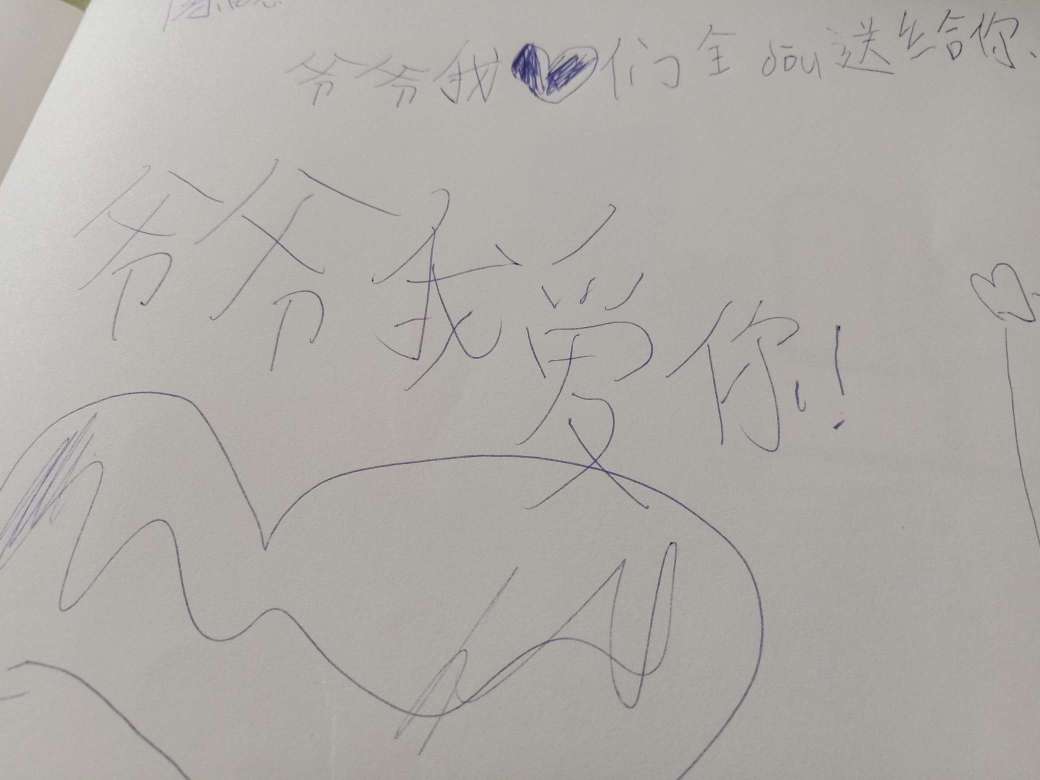 爷爷我们全dōu送给你.
爷爷我爱你!